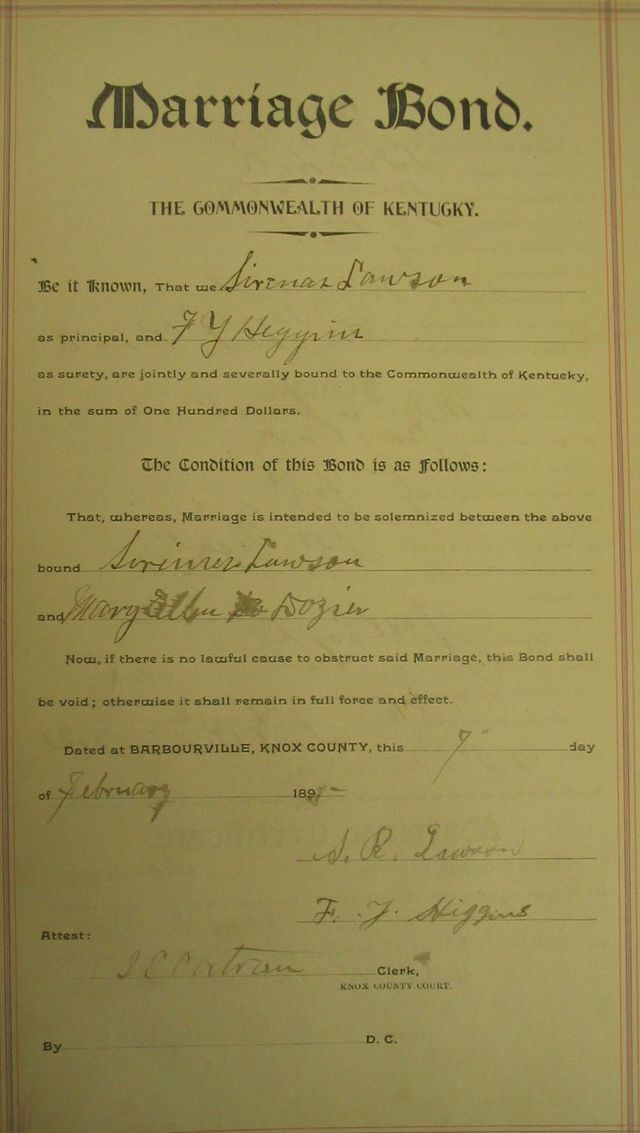 Marriage Bond.
THE COMMONWEALTH OF KENTUCKY.
Be it Known, That we Lawson
as principal, and F Y Higgins
as surety, are jointly and severally bound to the Commonwealth of Kentucky,
in the sum of One Hundred Dollars.
The Condition of this Bond is as Follows:
That, whereas, Marriage is intended to be solemnized between the above
bound Lawson
and Mary Ellen Dozier
Now, if there is no lawful cause to obstruct said Marriage, this Bond shall
be void; otherwise it shall remain in full force and effect.
Dated at BARBOURVILLE, KNOX COUNTY, this 7 day
of February 189
S. R. Lawson
F. Y. Higgins
Attest:
Clerk,
KNOX COUNTY COURT.
By D. C.